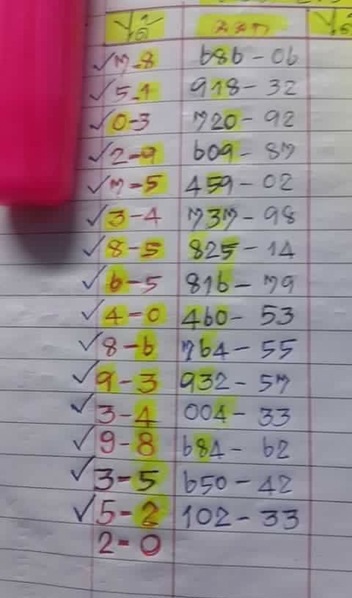 ✓7-8 686-06
✓5-1 918-32
✓0-3 720-92
✓2-9 609-87
✓7-5 459-02
✓3-4 737-98
✓8-5 825-14
✓6-5 816-79
✓4-0 460-53
✓8-6 764-55
✓9-3 932-57
✓3-4 004-33
✓9-8 684-62
✓3-5 650-42
✓5-2 102-33
2-0